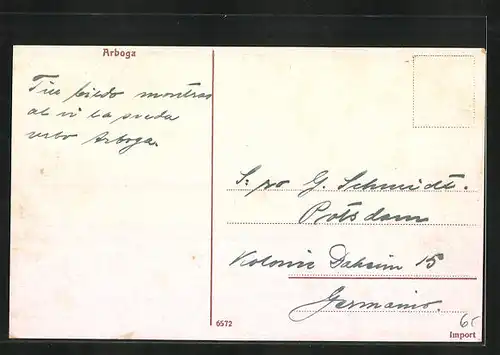 Arboga
Tiu bildo montras
al vi la sveda
urbo Arboga.
S: ro G. Schmidt.
Potsdam
Kolonie Daheim 15
Germanio.
6572
Import